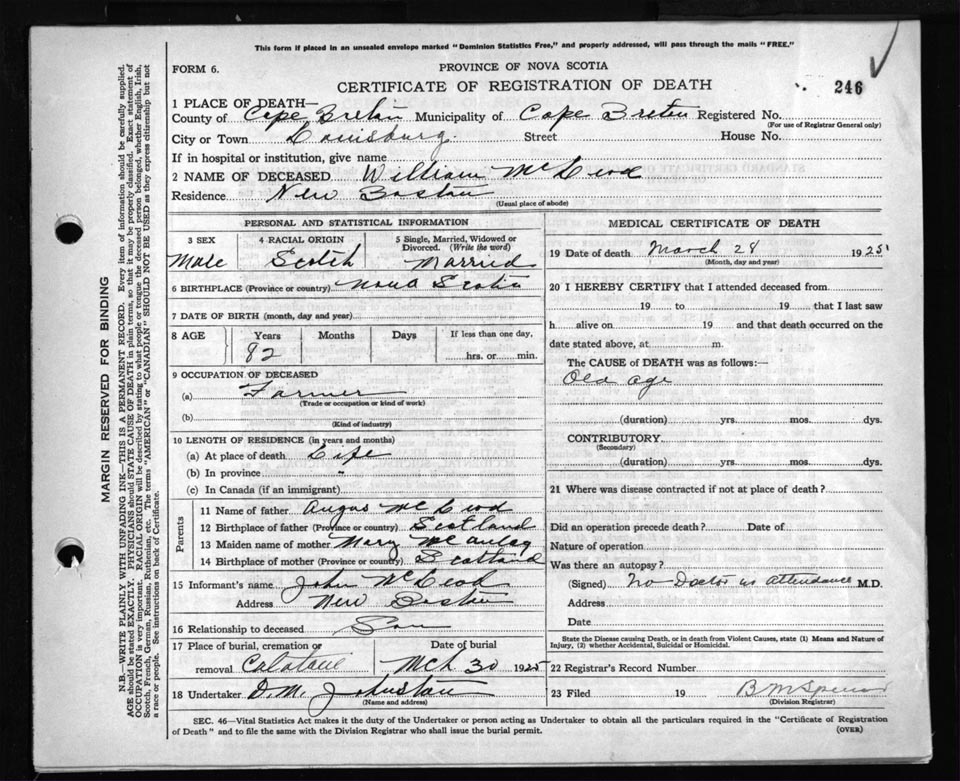 This form if placed in an unsealed envelope marked "Dominion Statistics Free," and properly addressed, will pass through the mails "FREE."
FORM 6.
PROVINCE OF NOVA SCOTIA
CERTIFICATE OF REGISTRATION OF DEATH
246
1 PLACE OF DEATH—
County of Cape Breton Municipality of Cape Breton Registered No.
(For use of Registrar General only)
City or Town Louisburg. Street House No.
If in hospital or institution, give name
2 NAME OF DECEASED William McLeod
Residence New Boston
(Usual place of abode)
PERSONAL AND STATISTICAL INFORMATION
3 SEX 4 RACIAL ORIGIN 5 Single, Married, Widowed or Divorced. (Write the word)
Male Scotch Married
6 BIRTHPLACE (Province or country) Nova Scotia
7 DATE OF BIRTH (month, day and year)
8 AGE Years Months Days If less than one day,
82 hrs. or min.
9 OCCUPATION OF DECEASED
(a) Farmer
(Trade or occupation or kind of work)
(b)
(Kind of industry)
10 LENGTH OF RESIDENCE (in years and months)
(a) At place of death Life
(b) In province "
(c) In Canada (if an immigrant)
Parents
11 Name of father Angus McLeod
12 Birthplace of father (Province or country) Scotland
13 Maiden name of mother Mary McAulay
14 Birthplace of mother (Province or country) Scotland
15 Informant's name John McLeod
Address New Boston
16 Relationship to deceased Son
17 Place of burial, cremation or removal Date of burial
Mch 30 1925
18 Undertaker D. M. Johnston
(Name and address)
MEDICAL CERTIFICATE OF DEATH
19 Date of death March 28 1925
(Month, day and year)
20 I HEREBY CERTIFY that I attended deceased from
19 to 19 that I last saw
h alive on 19 and that death occurred on the
date stated above, at m.
The CAUSE of DEATH was as follows:—
Old age
(duration) yrs. mos. dys.
CONTRIBUTORY
(Secondary)
(duration) yrs. mos. dys.
21 Where was disease contracted if not at place of death?
Did an operation precede death? Date of
Nature of operation
Was there an autopsy?
(Signed) No Doctor in attendance M.D.
Address
Date
State the Disease causing Death, or in death from Violent Causes, state (1) Means and Nature of
Injury, (2) whether Accidental, Suicidal or Homicidal.
22 Registrar's Record Number
23 Filed 19 B M Spencer
(Division Registrar)
SEC. 46—Vital Statistics Act makes it the duty of the Undertaker or person acting as Undertaker to obtain all the particulars required in the "Certificate of Registration
of Death" and to file the same with the Division Registrar who shall issue the burial permit.
(OVER)
MARGIN RESERVED FOR BINDING
N.B.—WRITE PLAINLY WITH UNFADING INK—THIS IS A PERMANENT RECORD. Every item of information should be carefully supplied.
AGE should be stated EXACTLY. PHYSICIANS should STATE CAUSE OF DEATH in plain terms, so that it may be properly classified. Exact statement of
OCCUPATION is very important. RACIAL ORIGIN will be described by stating to what people or tongue the deceased person belonged, whether English, Irish,
Scotch, French, German, Russian, Ruthenian, etc. The terms "AMERICAN" or "CANADIAN" SHOULD NOT BE USED as they express citizenship but not
a race or people. See instructions on back of Certificate.